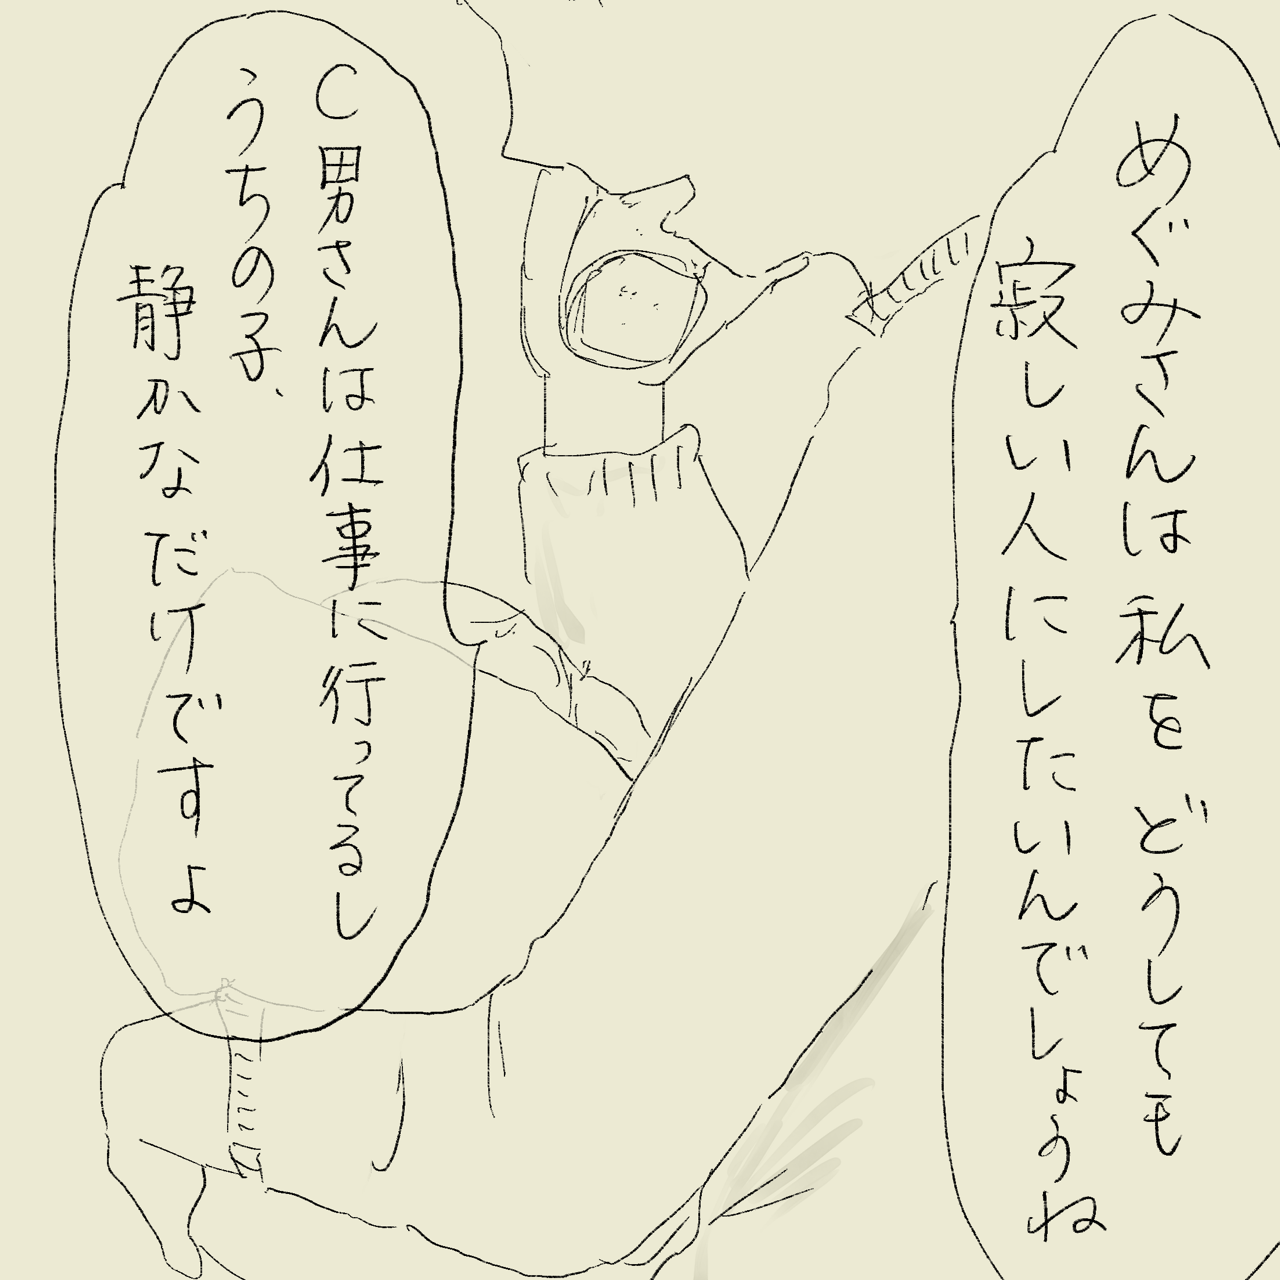 めぐみさんは私をどうしても
寂しい人にしたいんでしょうね
C男さんは仕事に行ってるし
うちの子、
静かなだけですよ